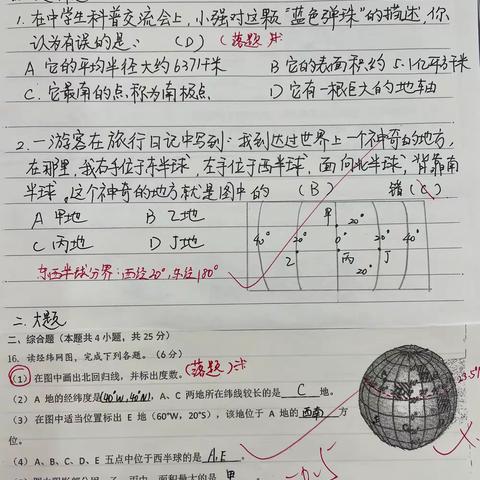 1. 在中学生科普交流会上，小强对这颗“蓝色弹珠”的描述，你
认为有误的是： （D）（落题）
A 它的平均半径大约6371千米 B 它的表面积约5.1亿平方千米
C. 它最南的点，称为南极点 D 它有一根巨大的地轴
2. 一游客在旅行日记中写到：我到达过世界上一个神奇的地方，
在那里，我右手位于东半球，左手位于西半球，面向北半球，背靠南
半球。这个神奇的地方就是图中的 （B） 错（C）
A 甲地 B 乙地
C 丙地 D 丁地
甲 20°
40° 20° 0° 20° 40°
乙 丙 丁
20°
东西半球分界：西经20°，东经180°
二、大题
二、综合题（本题共 4 小题，共 25 分）
16. 读经纬网图，完成下列各题。（6 分）
（1）在图中画出北回归线，并标出度数。（落题）
（2）A 地的经纬度是(40°W,40°N)，A、C 两地所在纬线较长的是 C 地。
（3）在图中适当位置标出 E 地（60°W，20°S），该地位于 A 地的 西南 方
位。
（4）A、B、C、D、E 五点中位于西半球的是 A.E 。